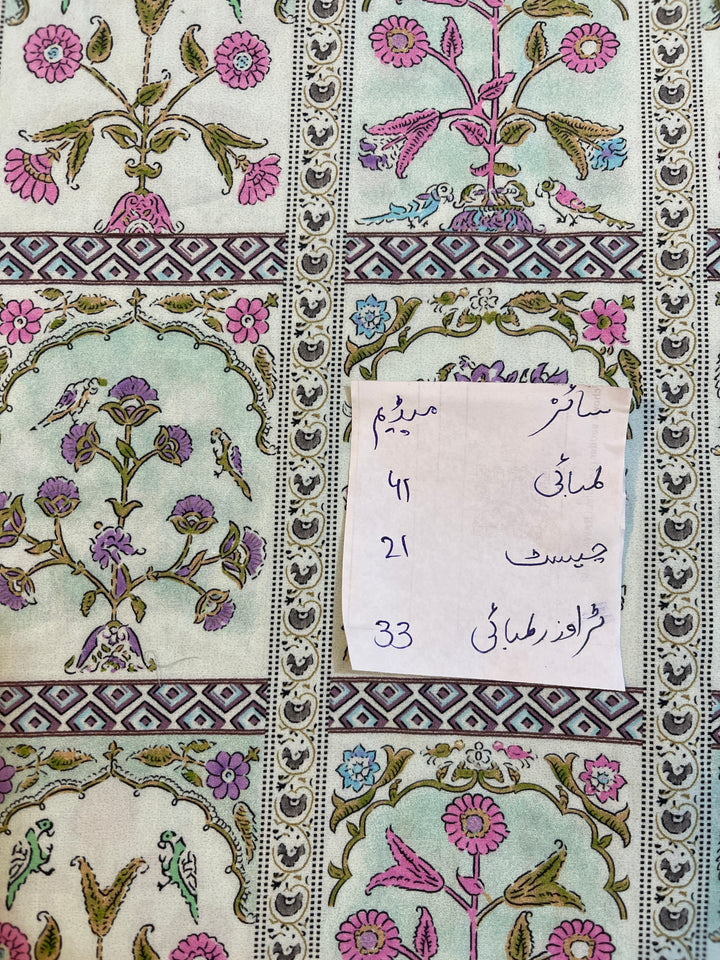 سائز میڈیم
لمبائی 41
چیسٹ 21
ٹراوزر لمبائی 33